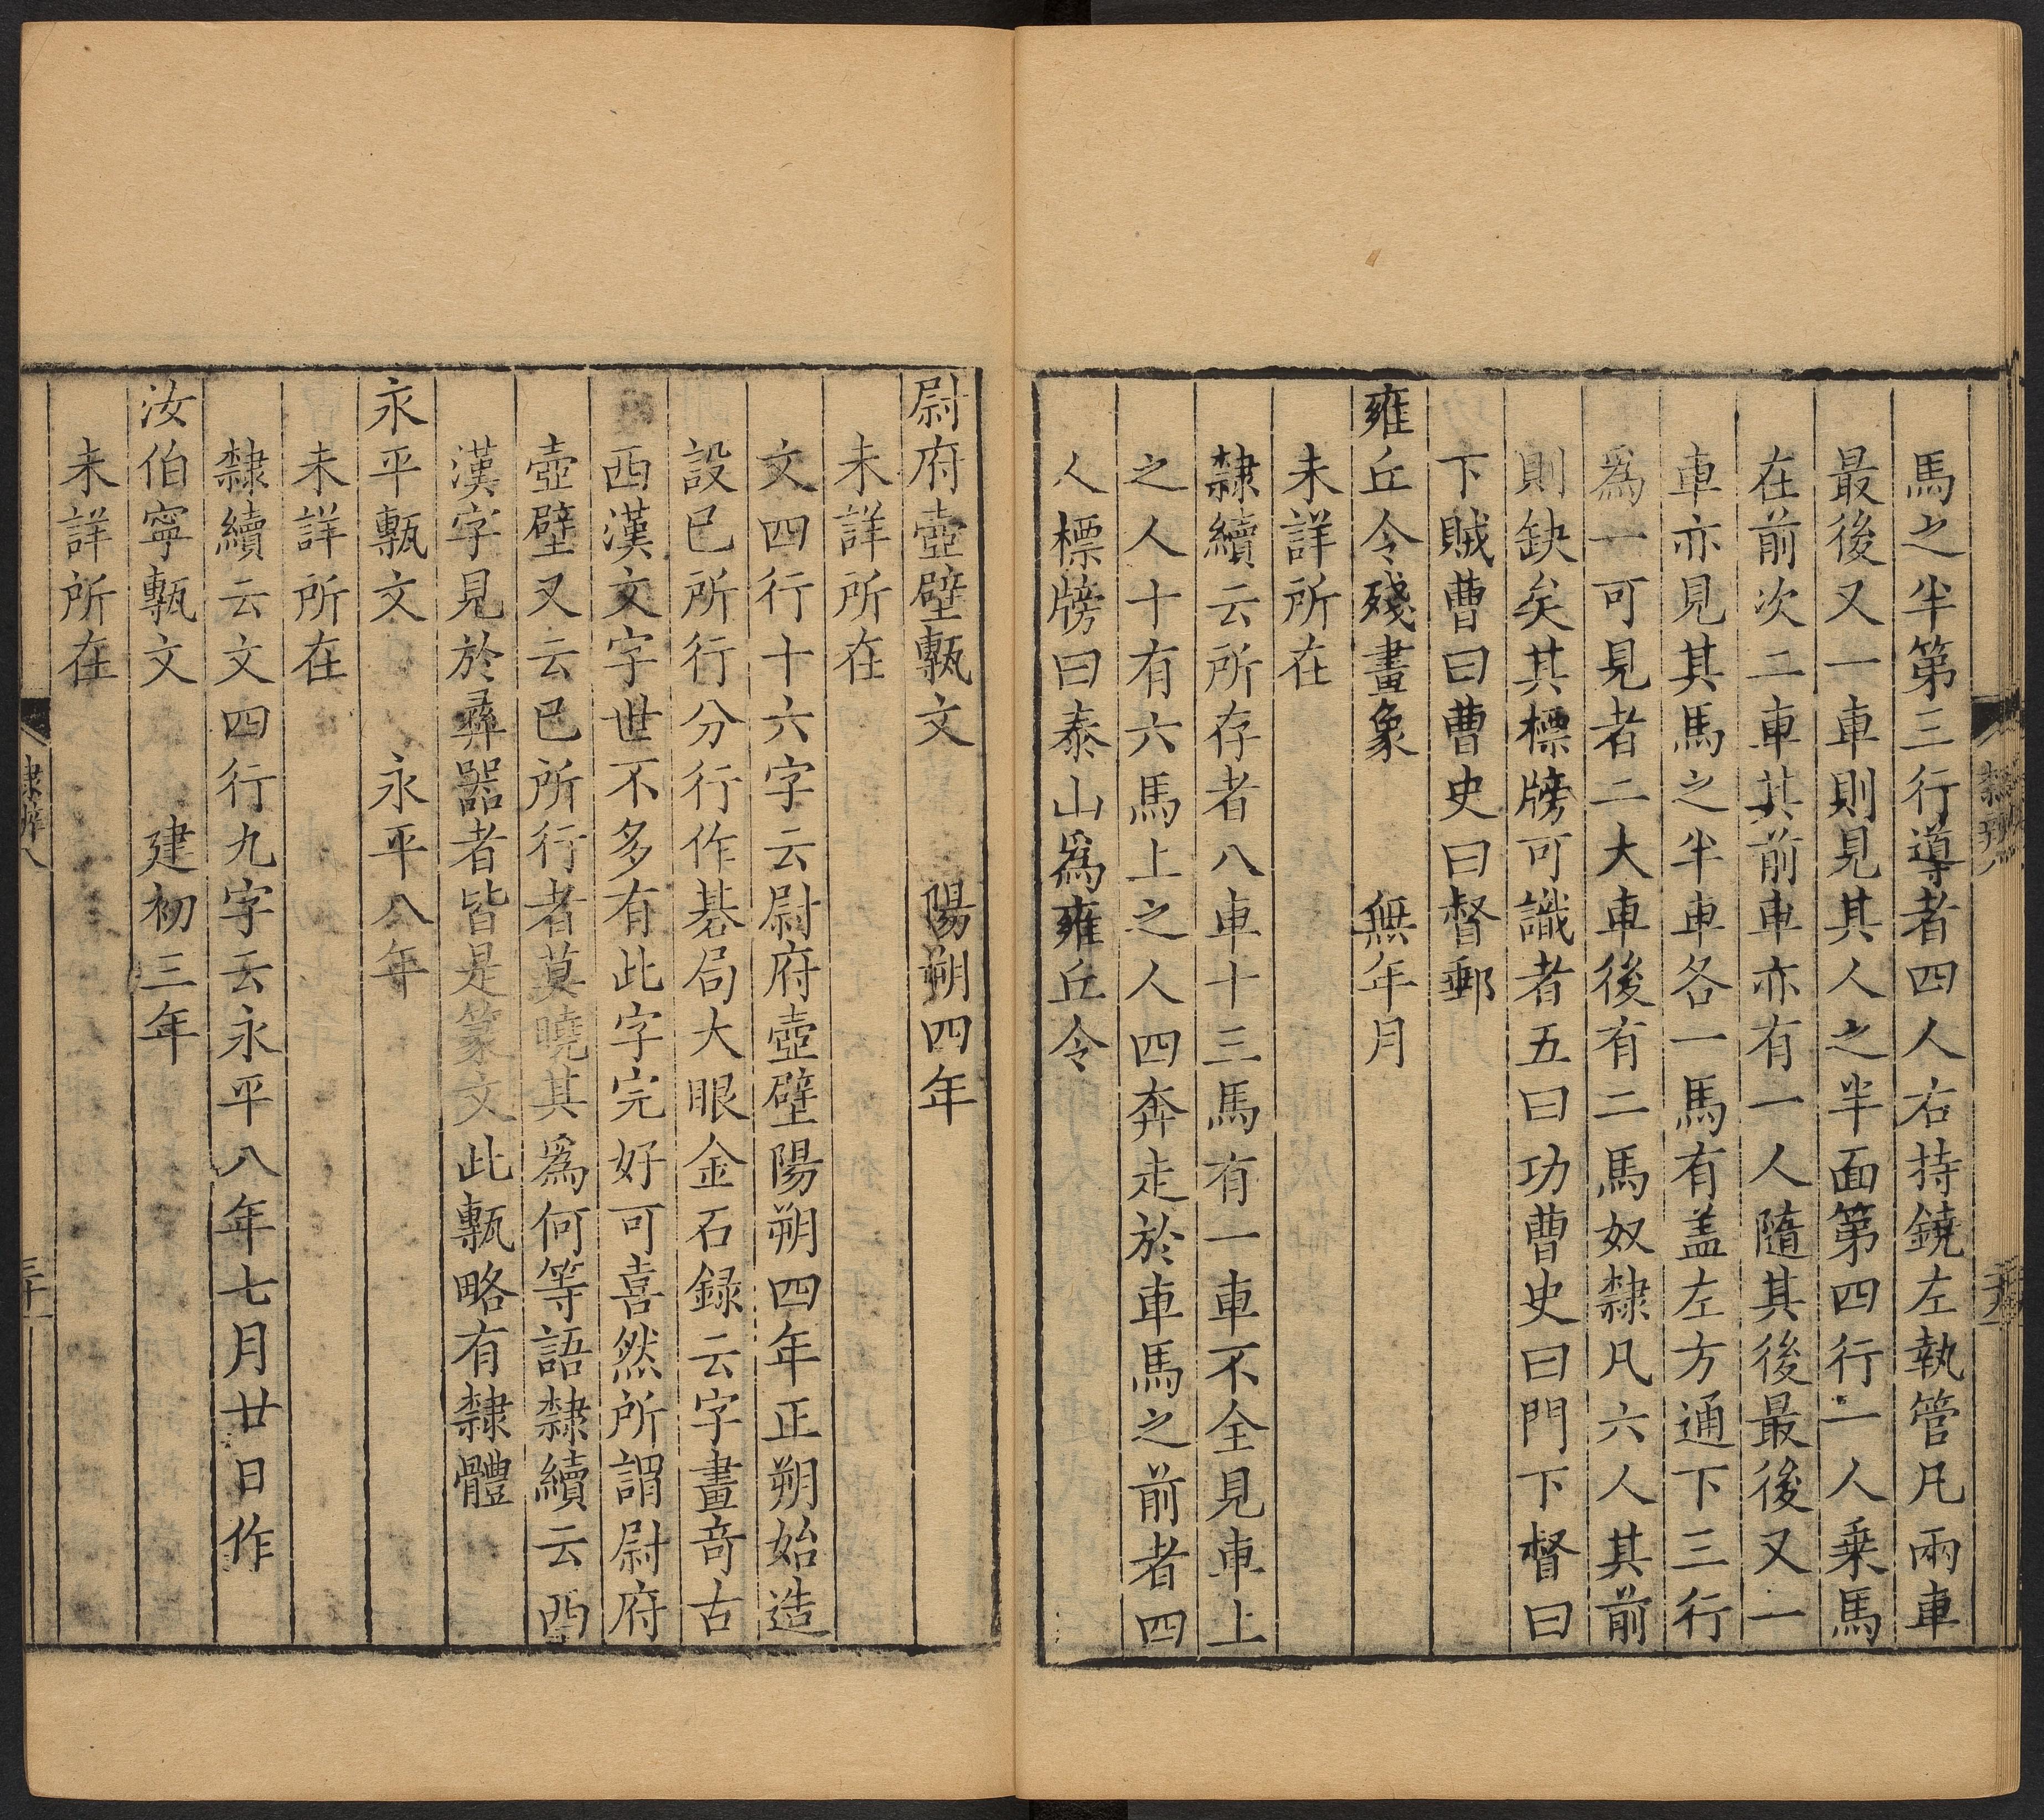 馬之半第三行導者四人右持鐃左執管凡兩車
最後又一車則見其人之半面第四行一人乗馬
在前次二車其前車亦有一人隨其後最後又一
車亦見其馬之半車各一馬有盖左方通下三行
爲一可見者二大車後有二馬奴隸凡六人其前
則缺矣其標牓可識者五曰功曹史曰門下督曰
下賊曹曰曹史曰督郵
雍丘令殘畫象 無年月
未詳所在
隸續云所存者八車十三馬有一車不全見車上
之人十有六馬上之人四奔走於車馬之前者四
人標牓曰泰山爲雍丘令
尉府壺壁甎文 陽朔四年
未詳所在
文四行十六字云尉府壺壁陽朔四年正朔始造
設已所行分行作碁局大眼金石録云字畫竒古
西漢文字世不多有此字完好可喜然所謂尉府
壺壁又云已所行者莫曉其爲何等語隸續云西
漢字見於彝器者皆是篆文此甎略有隸體
永平甎文 永平八年
未詳所在
隸續云文四行九字云永平八年七月廿日作
汝伯寧甎文 建初三年
未詳所在
隸辨八
三十一